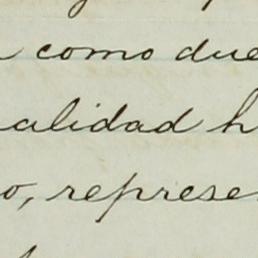 como due
alidad h
o, represe